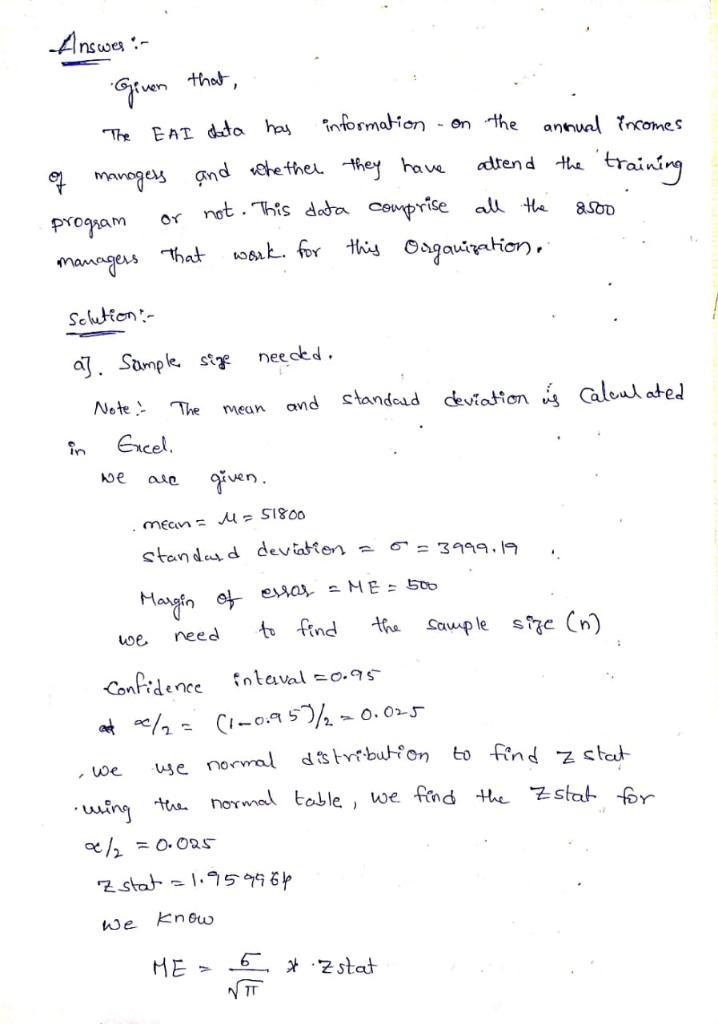 Answer :-
Given that,
The EAI data has information - on the annual incomes
of managers and whether they have attend the training
program or not. This data comprise all the 2500
managers that work for this Organization.
Solution :-
a]. Sample size needed.
Note :- The mean and standard deviation is Calculated
in Excel.
we are given.
mean = μ = 51800
standard deviation = σ = 3999.19
Margin of error = ME = 500
we need to find the sample size (n)
Confidence interval = 0.95
α/2 = (1-0.95)/2 = 0.025
, we use normal distribution to find z stat
using the normal table, we find the z stat for
α/2 = 0.025
z stat = 1.959964
we know
ME = σ/√n * z stat